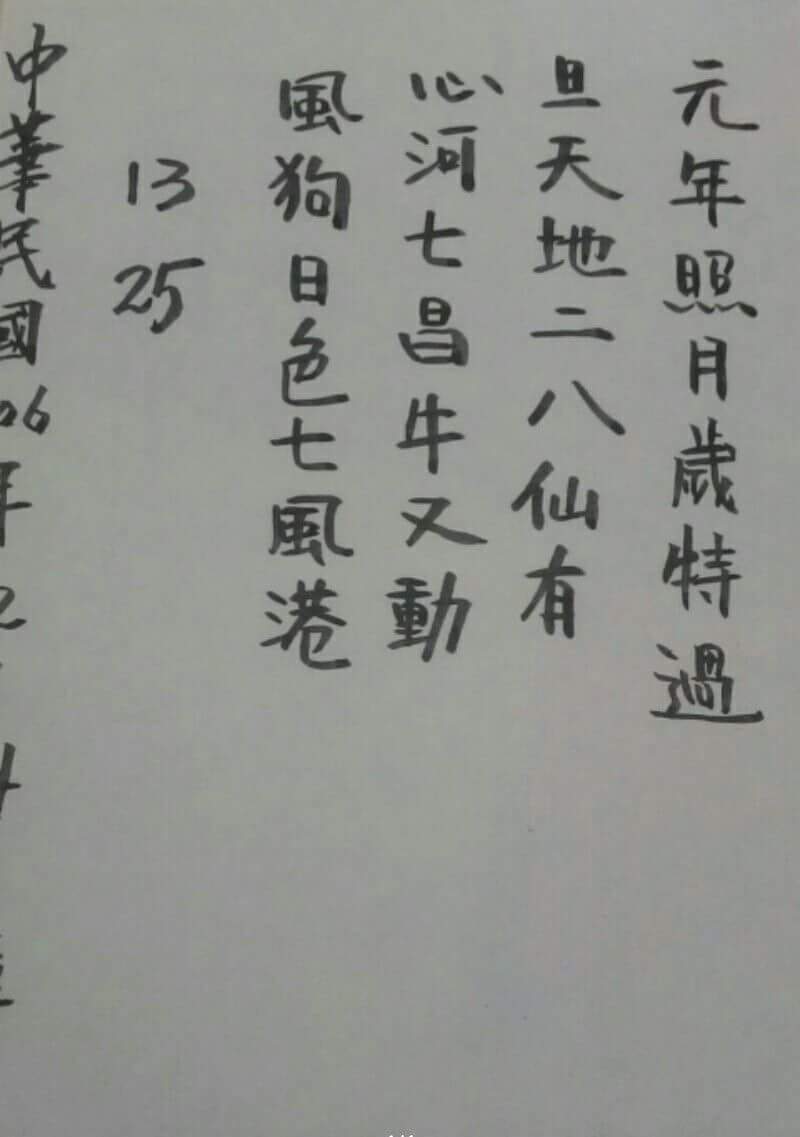 元年照月歲特過
旦天地二八仙有
心河七昌牛又動
風狗日色七風港
13
25
中華民國06年2